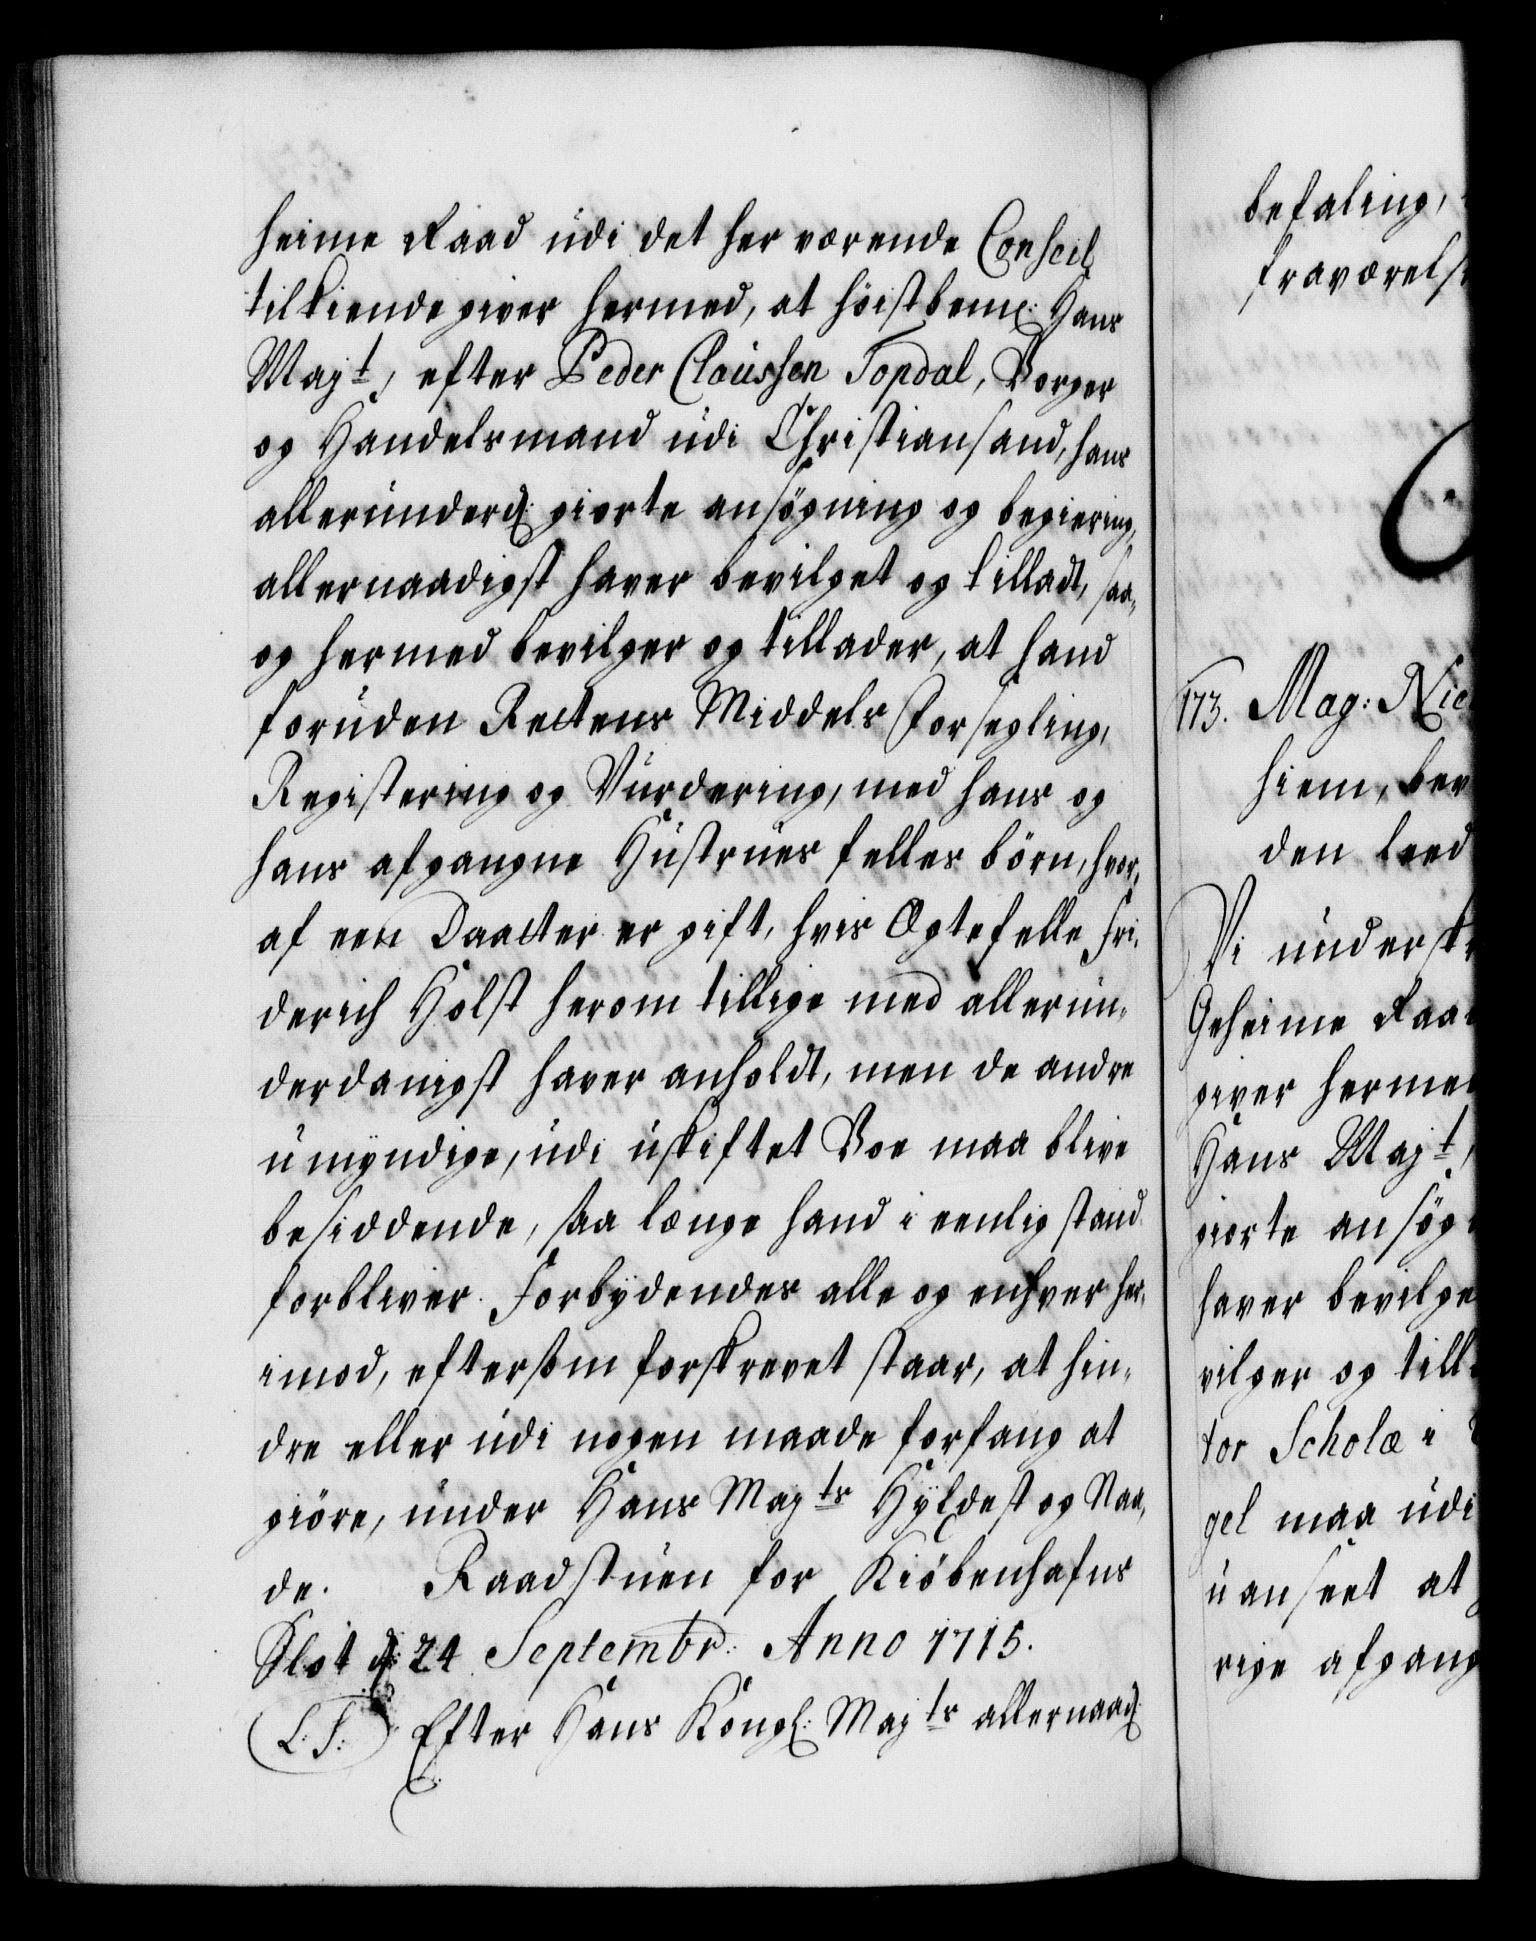 heime Raad udi det her værende Conseil,
tilkiende giver hermed, at høistbemt: Hans
Majt, efter Peder Claussen Topdal, Borger
og Handelsmand udi Christiansand, hans
allerunderd: giorte ansøgning og begiering,
allernaadigst haver bevilget og tilladt, saa,
og hermed bevilger og tillader, at hand
foruden Rettens Middels Forsegling,
Registering og Vurdering, med hans og
hans afgangne Hustrues felles børn, hvor,
af een Daatter er gift, hvis Ægtefelle Fri,
derich Holst herom tillige med allerun,
derdanigst haver anholdt, men de andre
umyndige, udi uskiftet Boe maa blive
besiddende, saa længe hand i eenlig stand
forbliver. Forbydendes alle og enhver her,
imod, eftersom forskrevet staar, at hin,
dre eller udi nogen maade forfang at
giöre, under Hans Majts Hyldest og Naa,
de. Raadstuen for Kiöbenhafns
Slot d: 24 Septembr: Anno 1715.
L.S. Efter Hans Kongl: Majts allernaad:
befaling,
fraværelse
173. Mag: Nic
hiem, bev
den leed
Vi underskr
Geheime Raad
giver hermed
Hans Majt,
giorte ansøg
haver bevilge
vilger og till
tor Scholæ i
gel maa udi
uanseet at
rige afgang